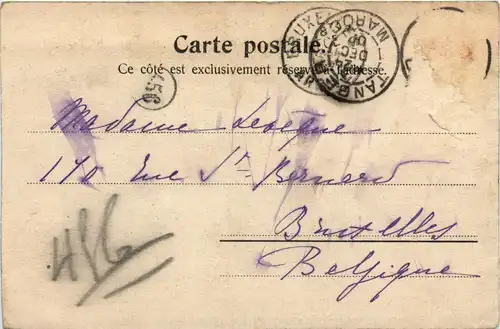 Carte postale.
Ce côté est exclusivement réservé à l'adresse.
TANGER
MAROC
DEC
456
Madame Levêque
170 Rue St Bernard
Bruxelles
Belgique
486